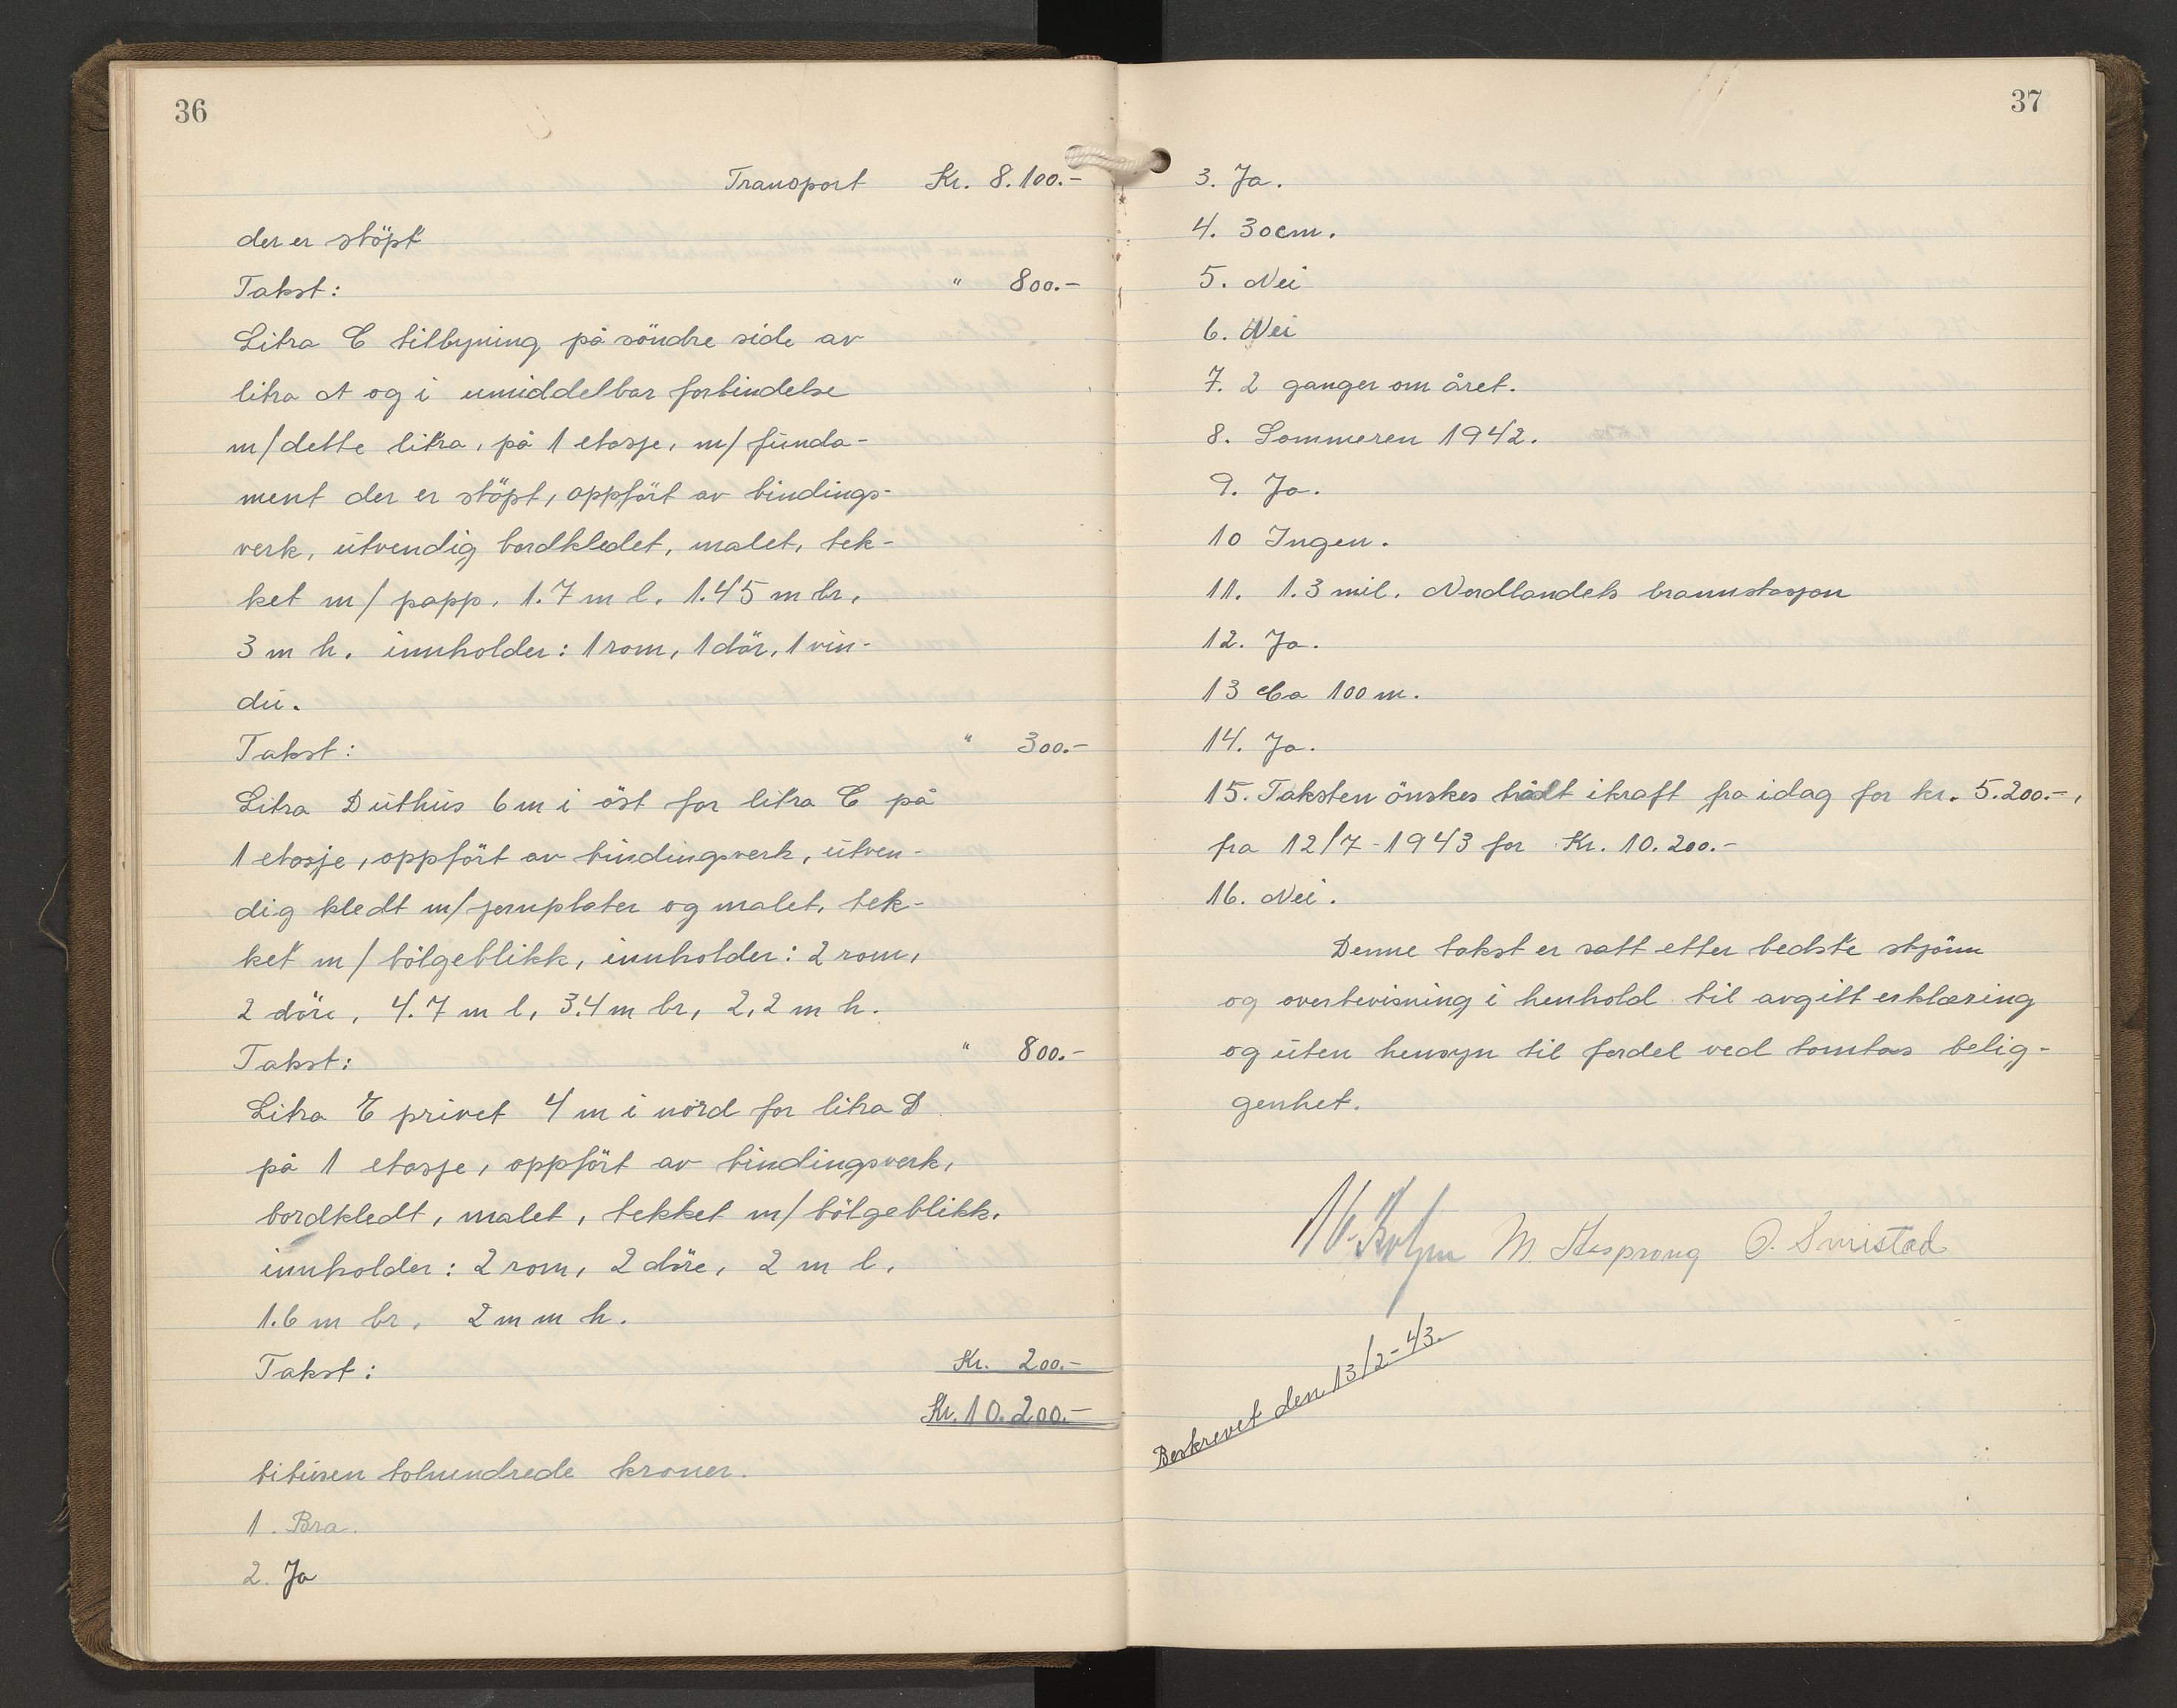 36
Transport Kr. 8.100.-
der er stöpt
Takst: " 800.-
Litra C tilbyning på söndre side av
litra A og i umiddelbar forbindelse
m/dette litra, på 1 etasje, m/ funda-
ment der er stöpt, oppfört av bindings-
verk, utvendig bordkledet, malet, tek-
ket m/ papp. 1.7 m l. 1.45 m br.
3 m h. innholder: 1 rom, 1 dör, 1 vin-
du.
Takst: " 300.-
Litra D uthus 6 m i öst for litra C på
1 etasje, oppfört av bindingsverk, utven-
dig kledt m/jernplater og malet, tek-
ket m/ bölgeblikk, innholder: 2 rom,
2 döre, 4.7 m l, 3.4 m br, 2,2 m h.
Takst: " 800.-
Litra E privet 4 m i nord for litra D
på 1 etasje, oppfört av bindingsverk,
bordkledt, malet, tekket m/ bölgeblikk.
innholder: 2 rom, 2 döre, 2 m l,
1.6 m br, 2 m m h.
Takst: Kr. 200.-
Kr. 10.200.-
titusen tohundrede kroner.
1. Bra.
2. Ja
37
3. Ja.
4. 30cm.
5. Nei
6. Nei
7. 2 ganger om året.
8. Sommeren 1942.
9. Ja.
10 Ingen.
11. 1.3 mil. Nordlandets brannstasjon
12. Ja.
13 Ca 100 m.
14. Ja.
15. Taksten önskes trådt ikraft fra idag for kr. 5.200.-,
fra 12/7-1943 for Kr. 10.200.-
16. Nei.
Denne takst er satt etter bedste skjönn
og overbevisning i henhold til avgitt erklæring
og uten hensyn til fordel ved tomtas belig-
genhet.
M. Stasprong O. Smistad
Beskrevet den 13/2-43.